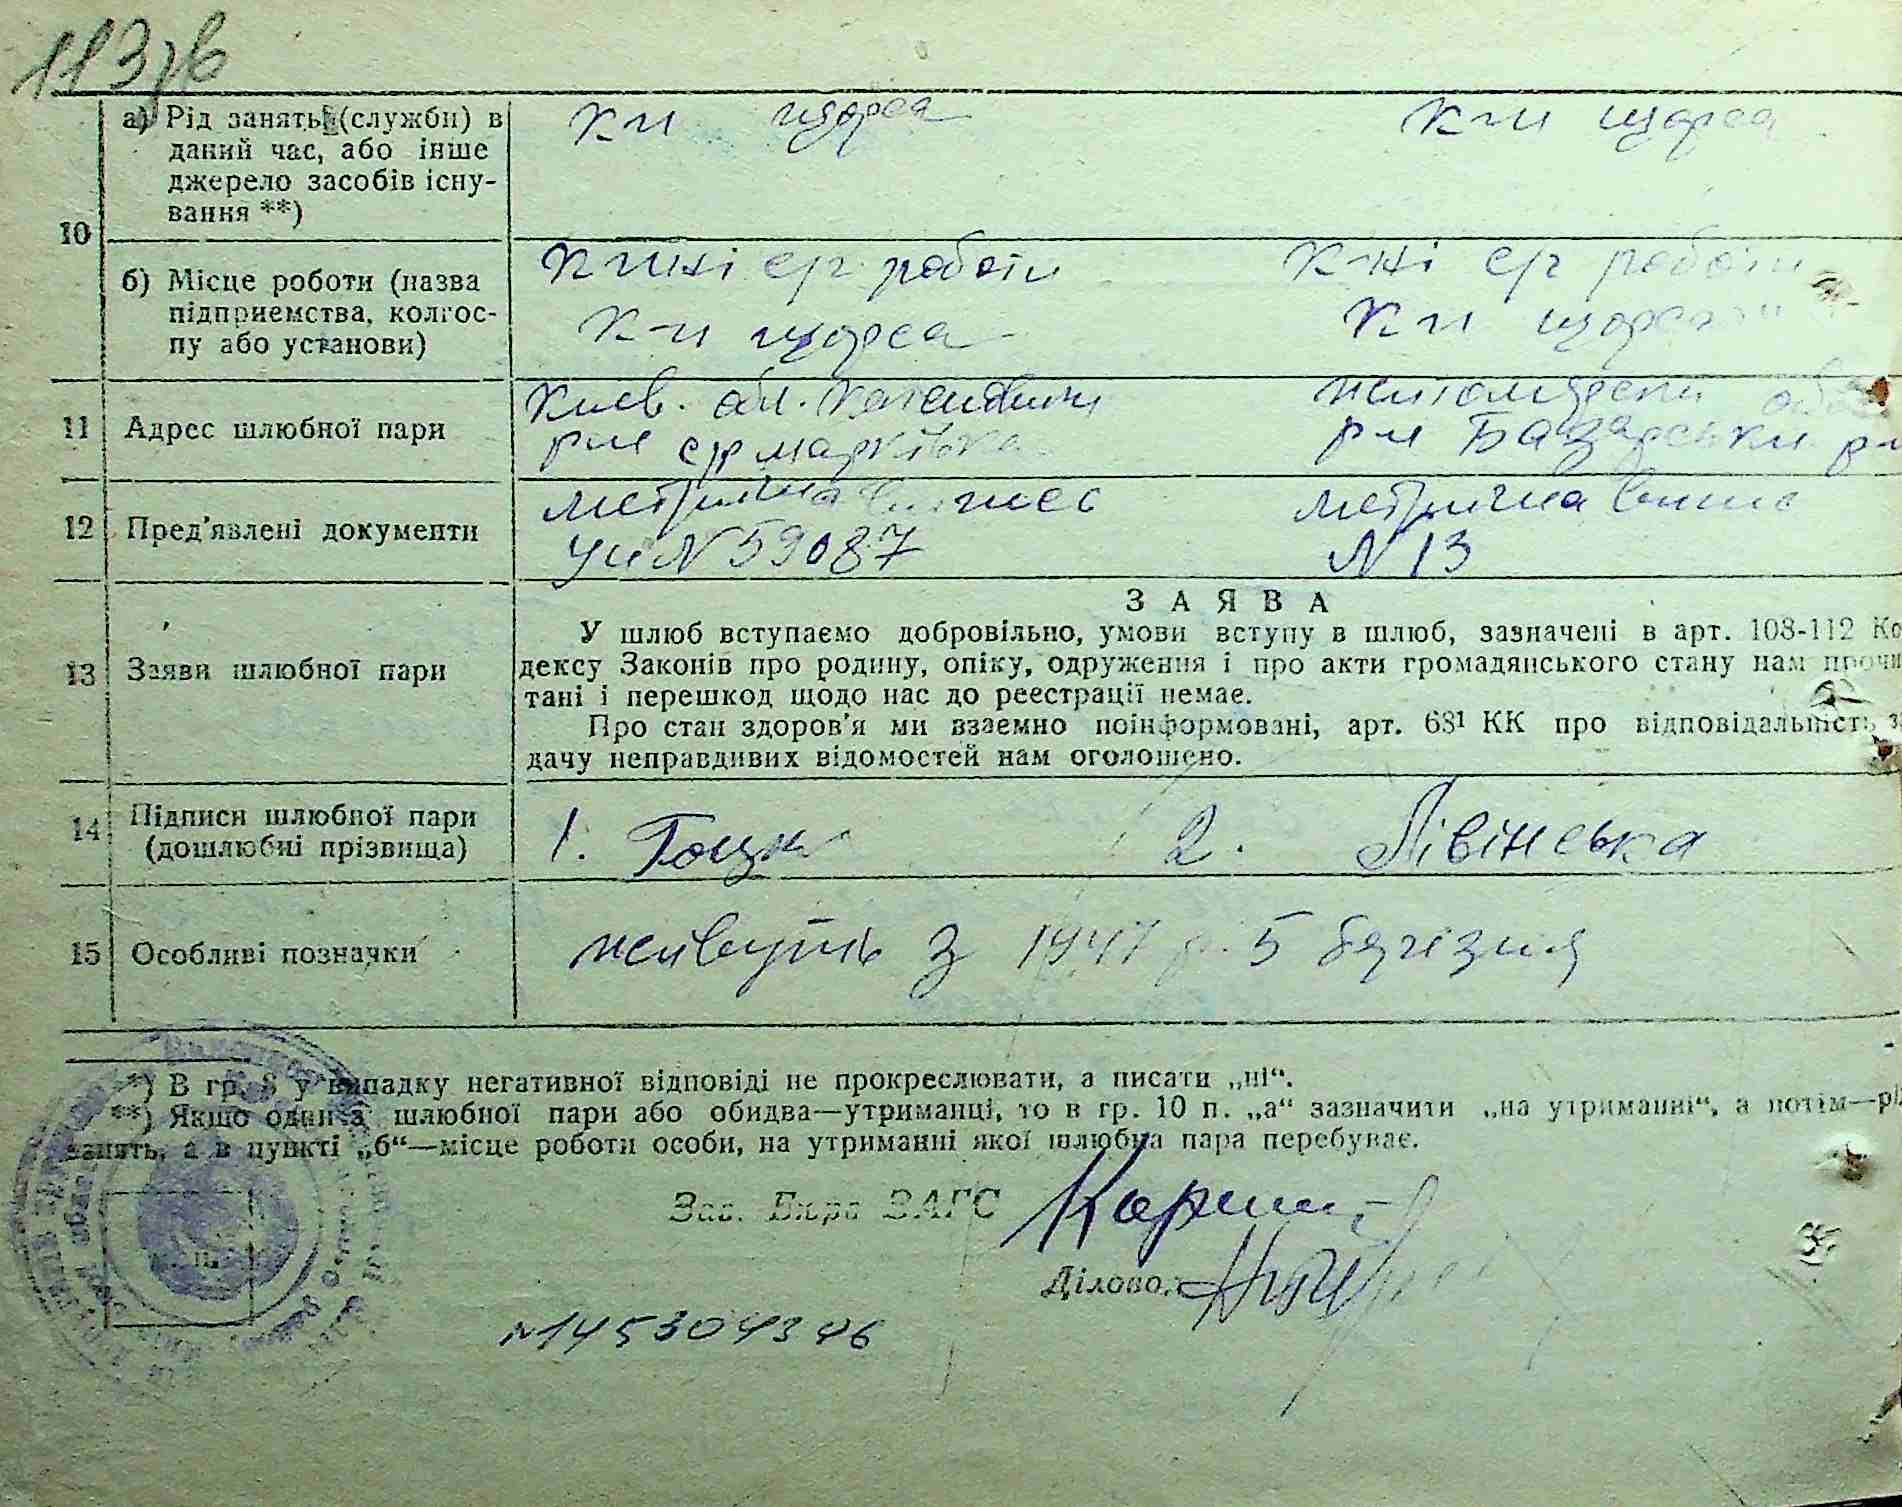 113зв
10
а) Рід занять (служби) в
даний час, або інше
джерело засобів існу-
вання **)
к-п щорса
к-п щорса
б) Місце роботи (назва
підприємства, колгос-
пу або установи)
роботи
к-п щорса
роботи
к-п щорса
11
Адрес шлюбної пари
Києв. обл.
р-н
обл
р-н Базарськи р-н
12
Пред'явлені документи
метрична
№ 59087
метрична
№ 13
13
Заяви шлюбної пари
ЗАЯВА
У шлюб вступаємо добровільно, умови вступу в шлюб, зазначені в арт. 108-112 Ко
дексу Законів про родину, опіку, одруження і про акти громадянського стану нам прочи
тані і перешкод щодо нас до реестрації немає.
Про стан здоров'я ми взаємно поінформовані, арт. 68¹ КК про відповідальність з
дачу неправдивих відомостей нам оголошено.
14
Підписи шлюбної пари
(дошлюбні прізвища)
1. Гоцк
2. Лівінська
15
Особливі позначки
живуть з 1947 р. 5 березня
*) В гр. 8 у випадку негативної відповіді не прокреслювати, а писати „ні“.
**) Якщо один з шлюбної пари або обидва—утриманці, то в гр. 10 п. „а“ зазначити „на утриманні“, а потім—рід
занять, а в пункті „б“—місце роботи особи, на утриманні якої шлюбна пара перебуває.
Зав. Бюро ЗАГС
Діловод
№145304346